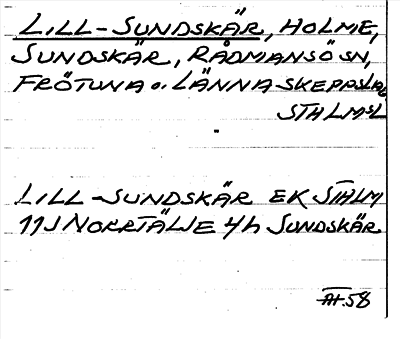 LILL-SUNDSKÄR, HOLME,
SUNDSKÄR, RÅDMANSÖ SN,
FRÖTUNA o. LÄNNA SKEPPSLAG
STHLMSL
LILL-SUNDSKÄR EK STHLM
11J NORRTÄLJE 4h SUNDSKÄR
At. 58